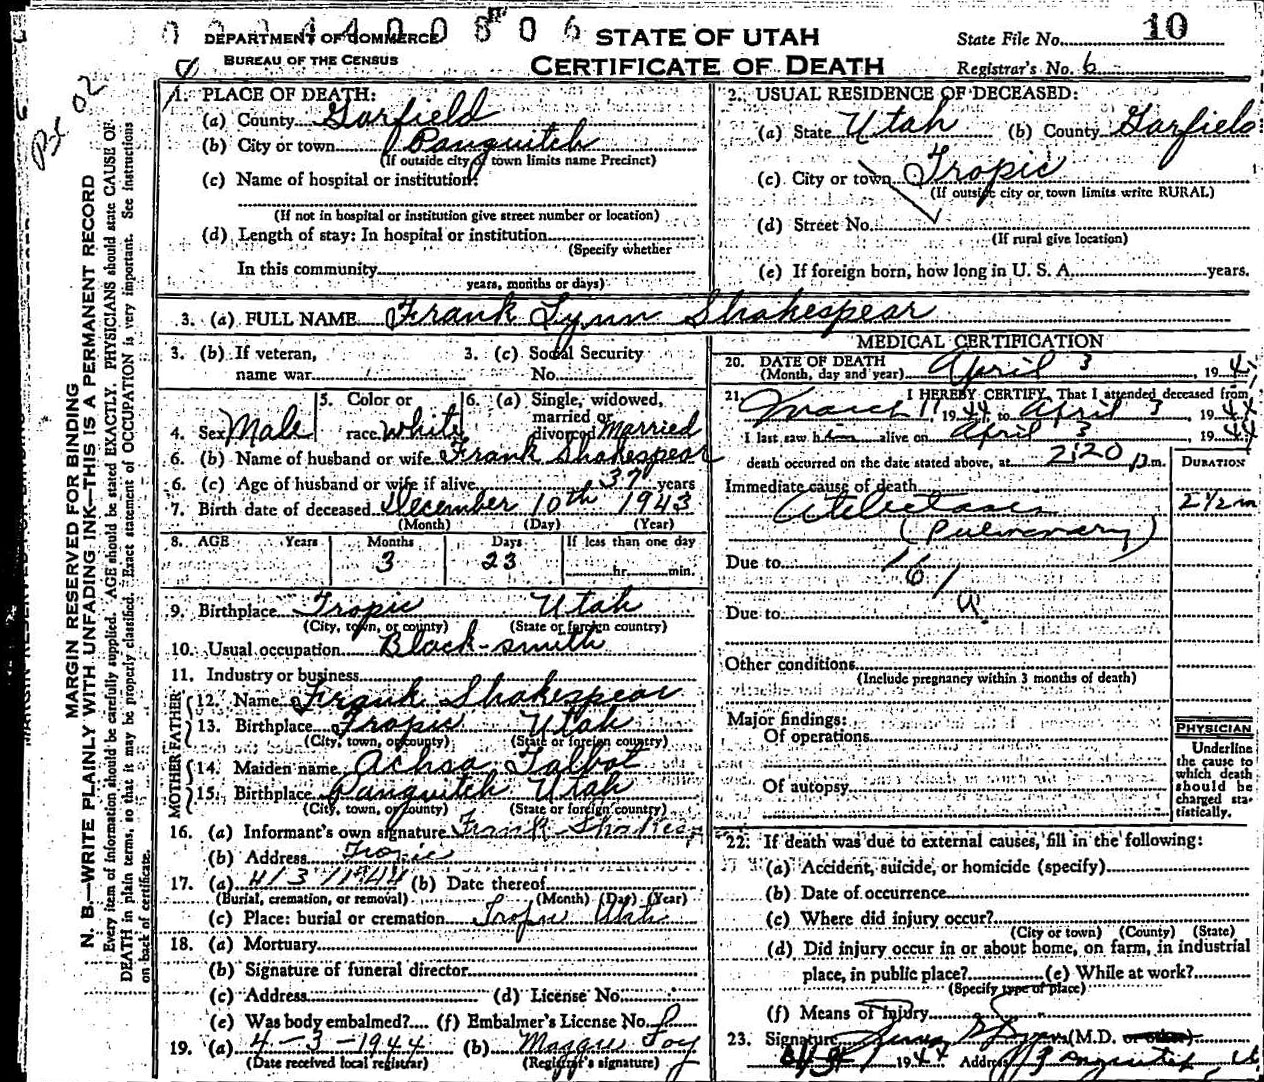 0 2 2 4 4 0 0 8 0 6
DEPARTMENT OF COMMERCE
BUREAU OF THE CENSUS
STATE OF UTAH
CERTIFICATE OF DEATH
State File No. 10
Registrar's No. 6
MARGIN RESERVED FOR BINDING
N. B.—WRITE PLAINLY WITH UNFADING INK—THIS IS A PERMANENT RECORD
Every item of information should be carefully supplied. AGE should be stated EXACTLY. PHYSICIANS should state CAUSE OF
DEATH in plain terms, so that it may be properly classified. Exact statement of OCCUPATION is very important. See instructions
on back of certificate.
1. PLACE OF DEATH:
(a) County Garfield
(b) City or town Panguitch
(If outside city or town limits name Precinct)
(c) Name of hospital or institution:
(If not in hospital or institution give street number or location)
(d) Length of stay: In hospital or institution
(Specify whether
In this community
years, months or days)
2. USUAL RESIDENCE OF DECEASED:
(a) State Utah (b) County Garfield
(c) City or town Tropic
(If outside city or town limits write RURAL)
(d) Street No.
(If rural give location)
(e) If foreign born, how long in U. S. A. years.
3. (a) FULL NAME Frank Lynn Shakespear
3. (b) If veteran,
name war
3. (c) Social Security
No.
4. Sex Male
5. Color or
race white
6. (a) Single, widowed,
married or
divorced Married
6. (b) Name of husband or wife Frank Shakespear
6. (c) Age of husband or wife if alive 37 years
7. Birth date of deceased December 10th 1943
(Month) (Day) (Year)
8. AGE Years Months Days If less than one day
3 23
hr. min.
9. Birthplace Tropic Utah
(City, town, or county) (State or foreign country)
10. Usual occupation Black-smith
11. Industry or business
FATHER
12. Name Frank Shakespear
13. Birthplace Tropic Utah
(City, town, or county) (State or foreign country)
MOTHER
14. Maiden name Achsa Talbot
15. Birthplace Panguitch Utah
(City, town, or county) (State or foreign country)
16. (a) Informant's own signature Frank Shakesp
(b) Address Tropic
17. (a) 4/3/1944 (b) Date thereof
(Burial, cremation, or removal) (Month) (Day) (Year)
(c) Place: burial or cremation Tropic Utah
18. (a) Mortuary
(b) Signature of funeral director
(c) Address (d) License No.
(e) Was body embalmed? (f) Embalmer's License No.
19. (a) 4-3-1944 (b) Maggie Foy
(Date received local registrar) (Registrar's signature)
MEDICAL CERTIFICATION
20. DATE OF DEATH
(Month, day and year) April 3, 194
21. I HEREBY CERTIFY, That I attended deceased from
March 11 1944 to April 3, 1944
I last saw him alive on April 3, 1944
death occurred on the date stated above, at 2:20 p.m.
DURATION
Immediate cause of death
Atelectasis 2 1/2 m
(Pulmonary)
Due to 161
a.
Due to
Other conditions
(Include pregnancy within 3 months of death)
Major findings:
Of operations
Of autopsy
PHYSICIAN
Underline
the cause to
which death
should be
charged sta-
tistically.
22. If death was due to external causes, fill in the following:
(a) Accident, suicide, or homicide (specify)
(b) Date of occurrence
(c) Where did injury occur?
(City or town) (County) (State)
(d) Did injury occur in or about home, on farm, in industrial
place, in public place? (e) While at work?
(Specify type of place)
(f) Means of injury
23. Signature (M.D. or other)
1944 Address Panguitch, U